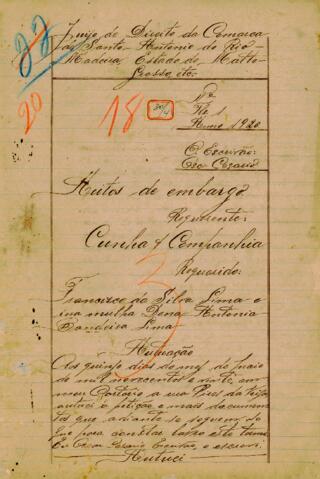 22
20
Juizo de Direito da Comarca
de Santo Antonio do Rio
Madeira, Estado de Matto-
Grosso, etc.
18
30/4
Fls 1
Anno 1920
O Escrivão:
Cesario
Autos de embargo
Requerente:
Cunha & Companhia
Requerido:
Francisco da Silva Lima e
sua mulher Dona Antonia
Bandeira Lima
3
Autuação
Aos quinze dias do mez de Maio
de mil novecentos e vinte, em
meu Cartorio
autuei a petição e mais documen
tos que adiante se seguem do
que para constar lavro este termo
Eu Cesario Escrivão, o escrevi.
Autuei